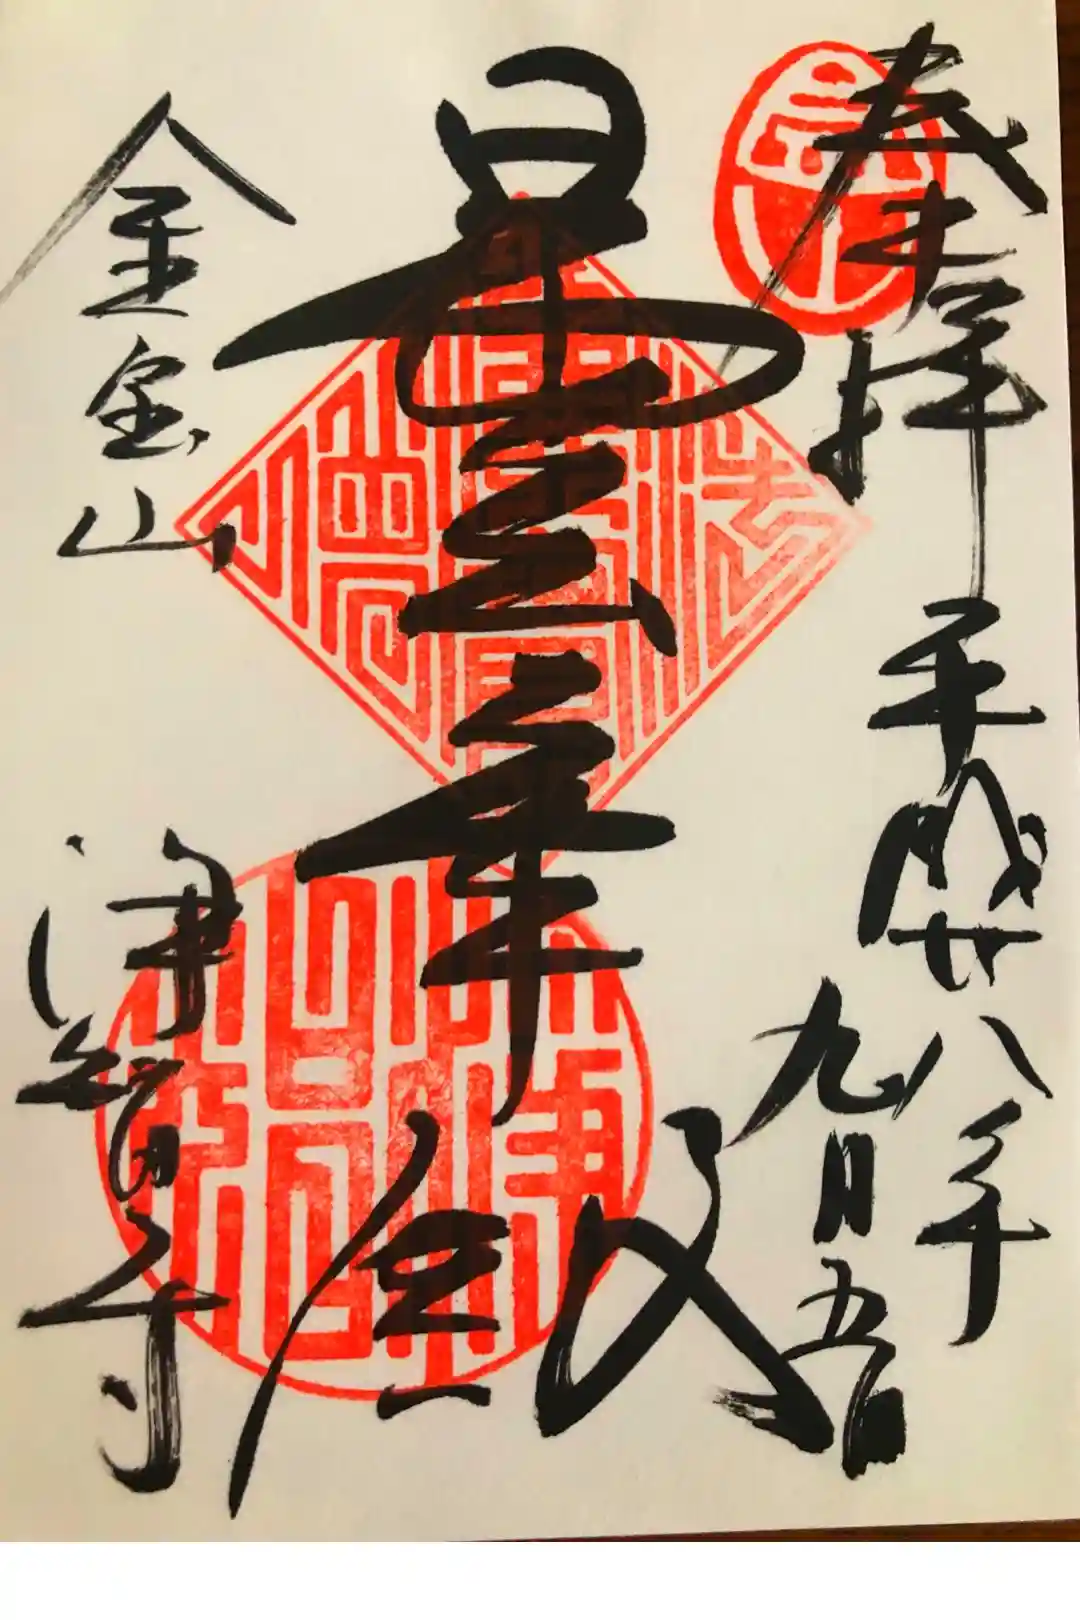 奉拝 平成廿八年
九月五日
曇華殿
金宝山 浄智寺